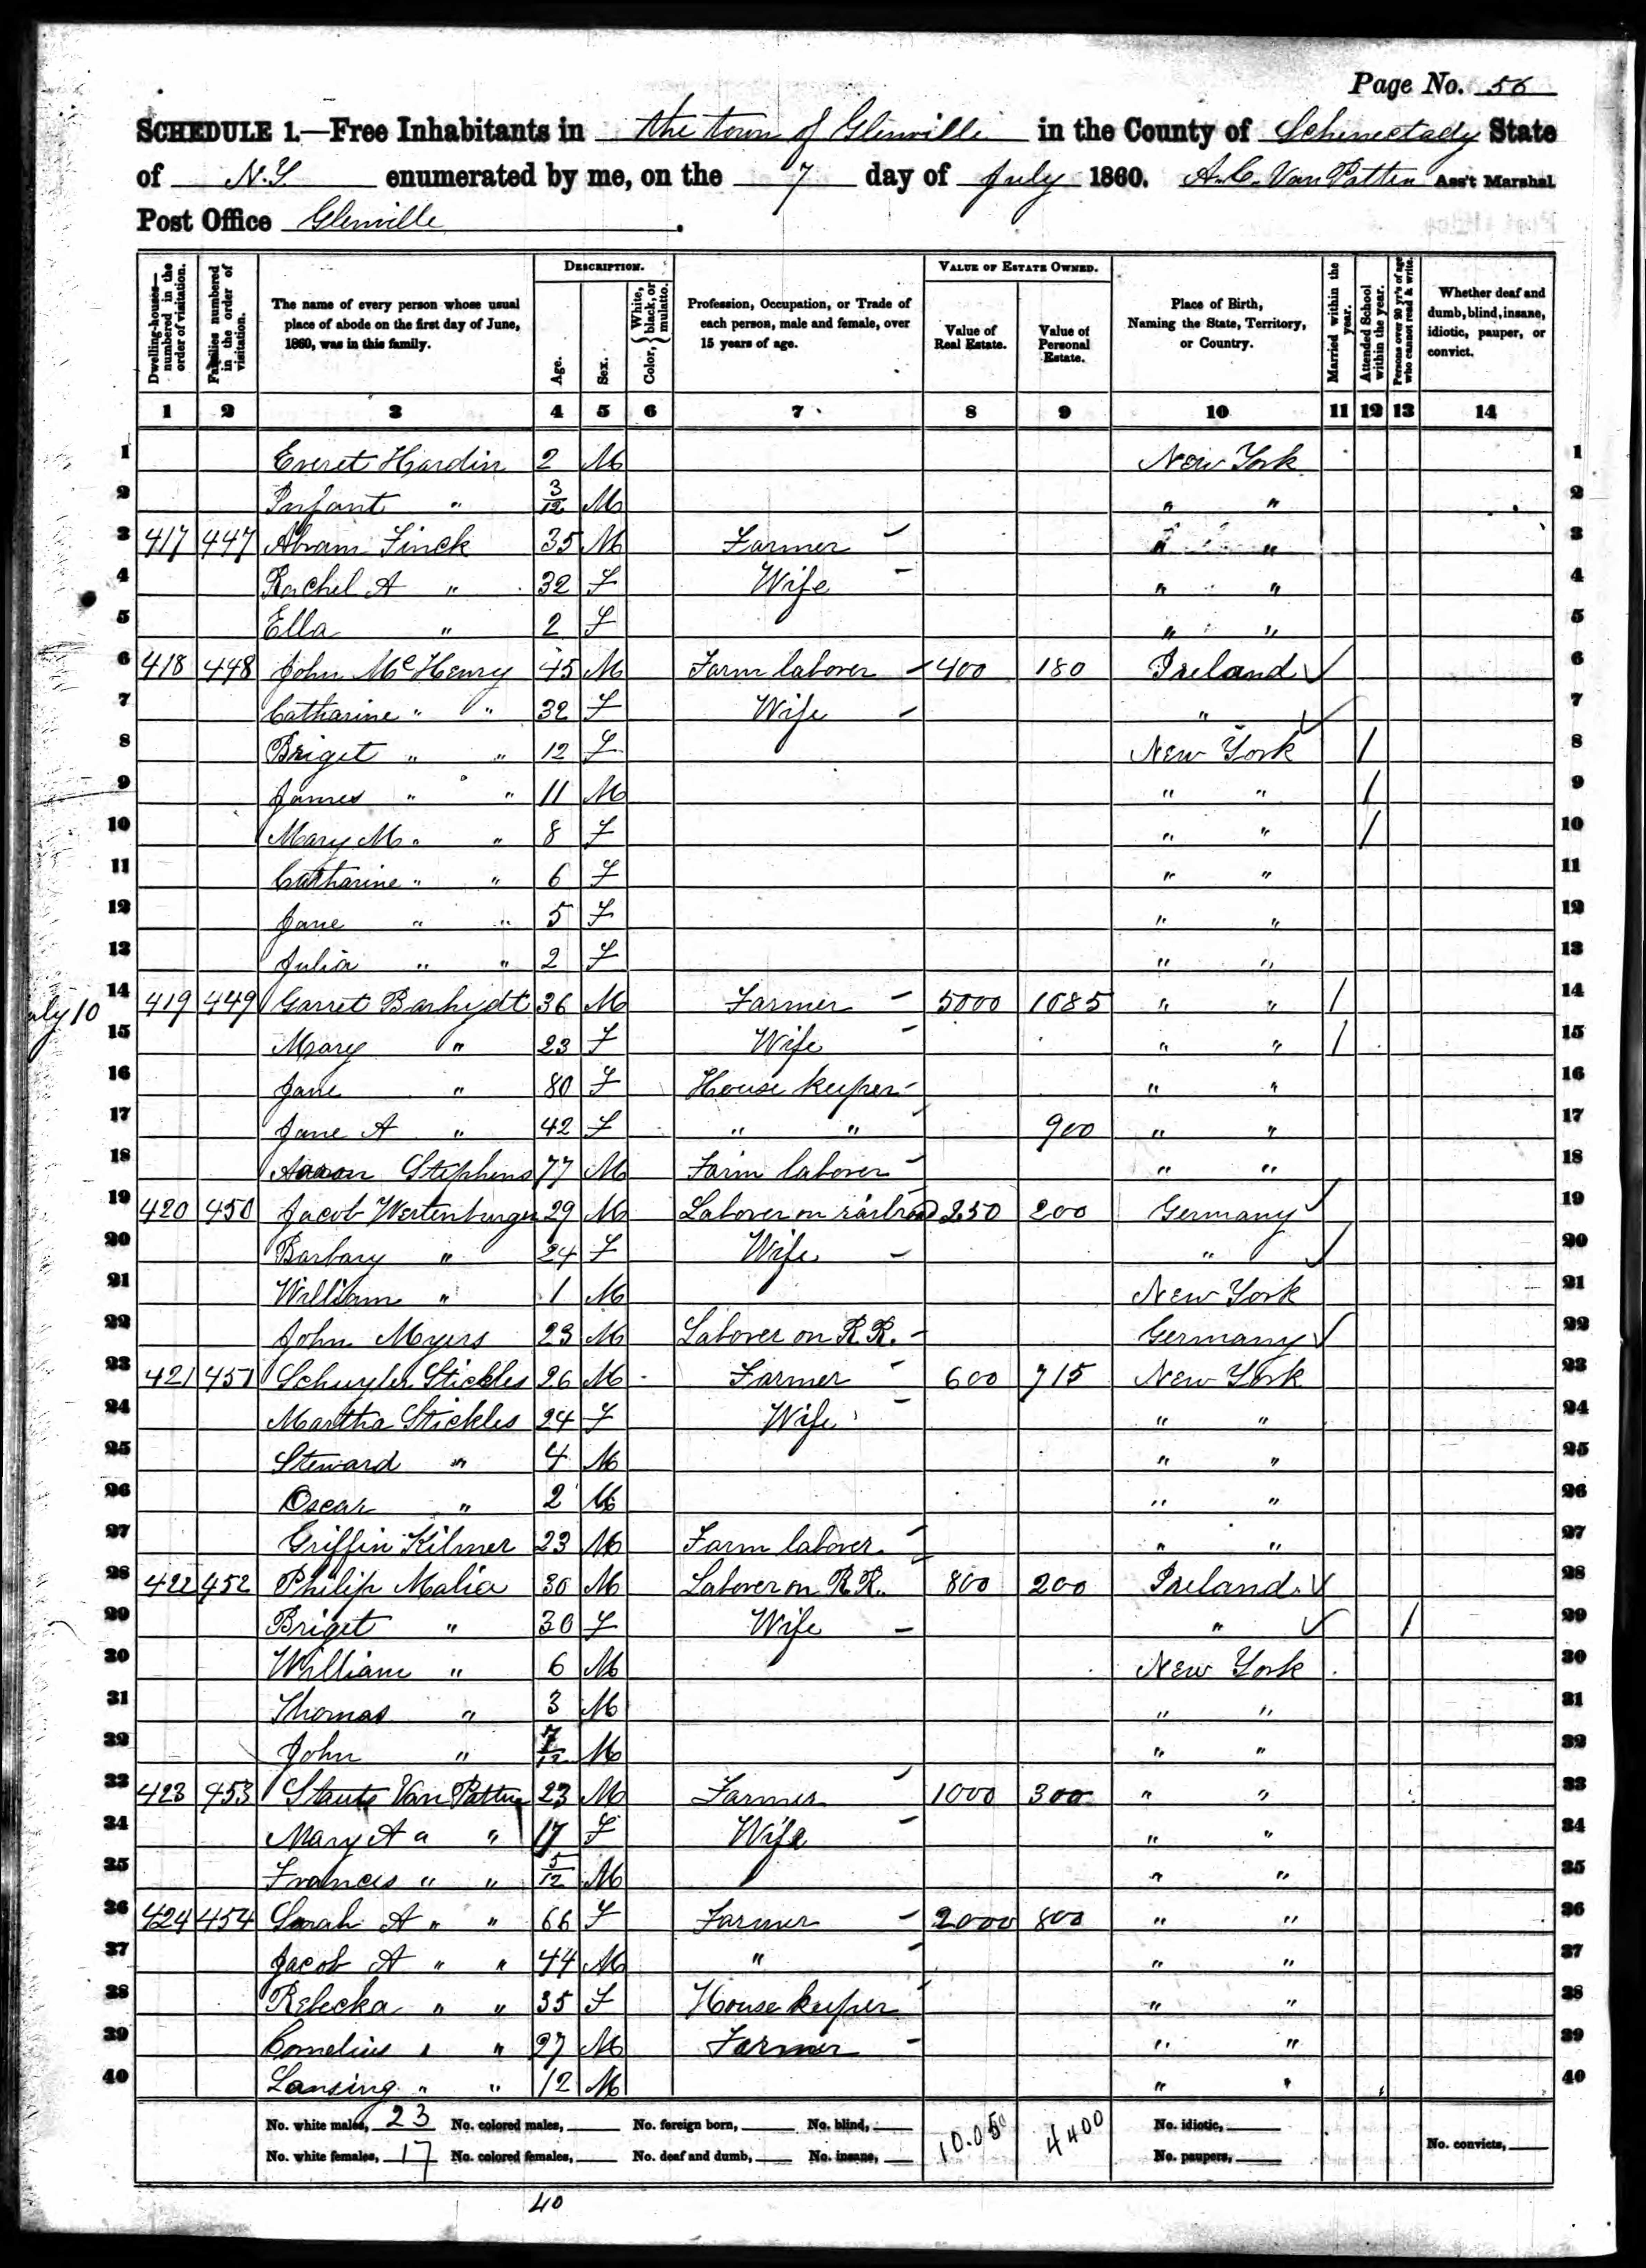 Page No. 56
SCHEDULE 1.—Free Inhabitants in the town of Glenville in the County of Schenectady State
of N.Y. enumerated by me, on the 7 day of July 1860. A. C. Van Patten Ass't Marshal
Post Office Glenville.
Dwelling-houses—numbered in the order of visitation.
Families numbered in the order of visitation.
The name of every person whose usual place of abode on the first day of June, 1860, was in this family.
DESCRIPTION.
Age.
Sex.
Color, { White, black, or mulatto.
Profession, Occupation, or Trade of each person, male and female, over 15 years of age.
VALUE OF ESTATE OWNED.
Value of Real Estate.
Value of Personal Estate.
Place of Birth, Naming the State, Territory, or Country.
Married within the year.
Attended School within the year.
Persons over 20 y'rs of age who cannot read & write.
Whether deaf and dumb, blind, insane, idiotic, pauper, or convict.
1 2 3 4 5 6 7 8 9 10 11 12 13 14
1 Everet Hardin 2 M New York 1
2 Infant " 3/12 M " " 2
3 417 447 Abram Finck 35 M Farmer " " 3
4 Rachel A " 32 F Wife " " 4
5 Ella " 2 F " " 5
6 418 448 John McHenry 45 M Farm laborer 400 180 Ireland ✓ 6
7 Catharine " " 32 F Wife " ✓ 7
8 Briget " " 12 F New York / 8
9 James " " 11 M " " / 9
10 Mary M " " 8 F " " / 10
11 Catharine " " 6 F " " 11
12 Jane " " 5 F " " 12
13 Julia " " 2 F " " 13
July 10 14 419 449 Garret Barhydt 36 M Farmer 5000 1085 " " / 14
15 Mary " 23 F Wife " " / 15
16 Jane " 80 F House keeper " " 16
17 Jane A " 42 F " " 900 " " 17
18 Aaron Stephens 77 M Farm laborer " " 18
19 420 450 Jacob Wertenburger 29 M Laborer on railroad 250 200 Germany ✓ 19
20 Barbary " 24 F Wife " ✓ 20
21 William " 1 M New York 21
22 John Myers 23 M Laborer on R R. Germany ✓ 22
23 421 451 Schuyler Stickles 26 M Farmer 600 715 New York 23
24 Martha Stickles 24 F Wife " " 24
25 Steward " 4 M " " 25
26 Oscar " 2 M " " 26
27 Griffin Kilmer 23 M Farm laborer " " 27
28 422 452 Philip Malia 30 M Laborer on R R. 800 200 Ireland ✓ 28
29 Briget " 30 F Wife " ✓ / 29
30 William " 6 M New York 30
31 Thomas " 3 M " " 31
32 John " 7/12 M " " 32
33 423 453 Van Patten 23 M Farmer 1000 300 " " 33
34 Mary A a " 17 F Wife " " 34
35 Francis " " 5/12 M " " 35
36 424 454 Sarah A " " 66 F Farmer 2000 800 " " 36
37 Jacob A " " 44 M " " " 37
38 Rebecka " " 35 F House keeper " " 38
39 Cornelius " " 27 M Farmer " " 39
40 Lansing " " 12 M " " 40
No. white males, 23 No. colored males, No. foreign born, No. blind, 10.050 4400 No. idiotic,
No. white females, 17 No. colored females, No. deaf and dumb, No. insane, No. paupers, No. convicts,
40